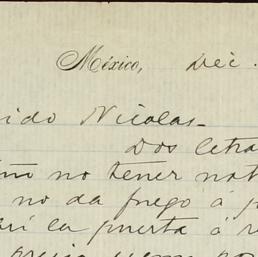 México, Dec.
ido Nicolas
Dos letra
no tener not
no da fuego á p
la puerta á r